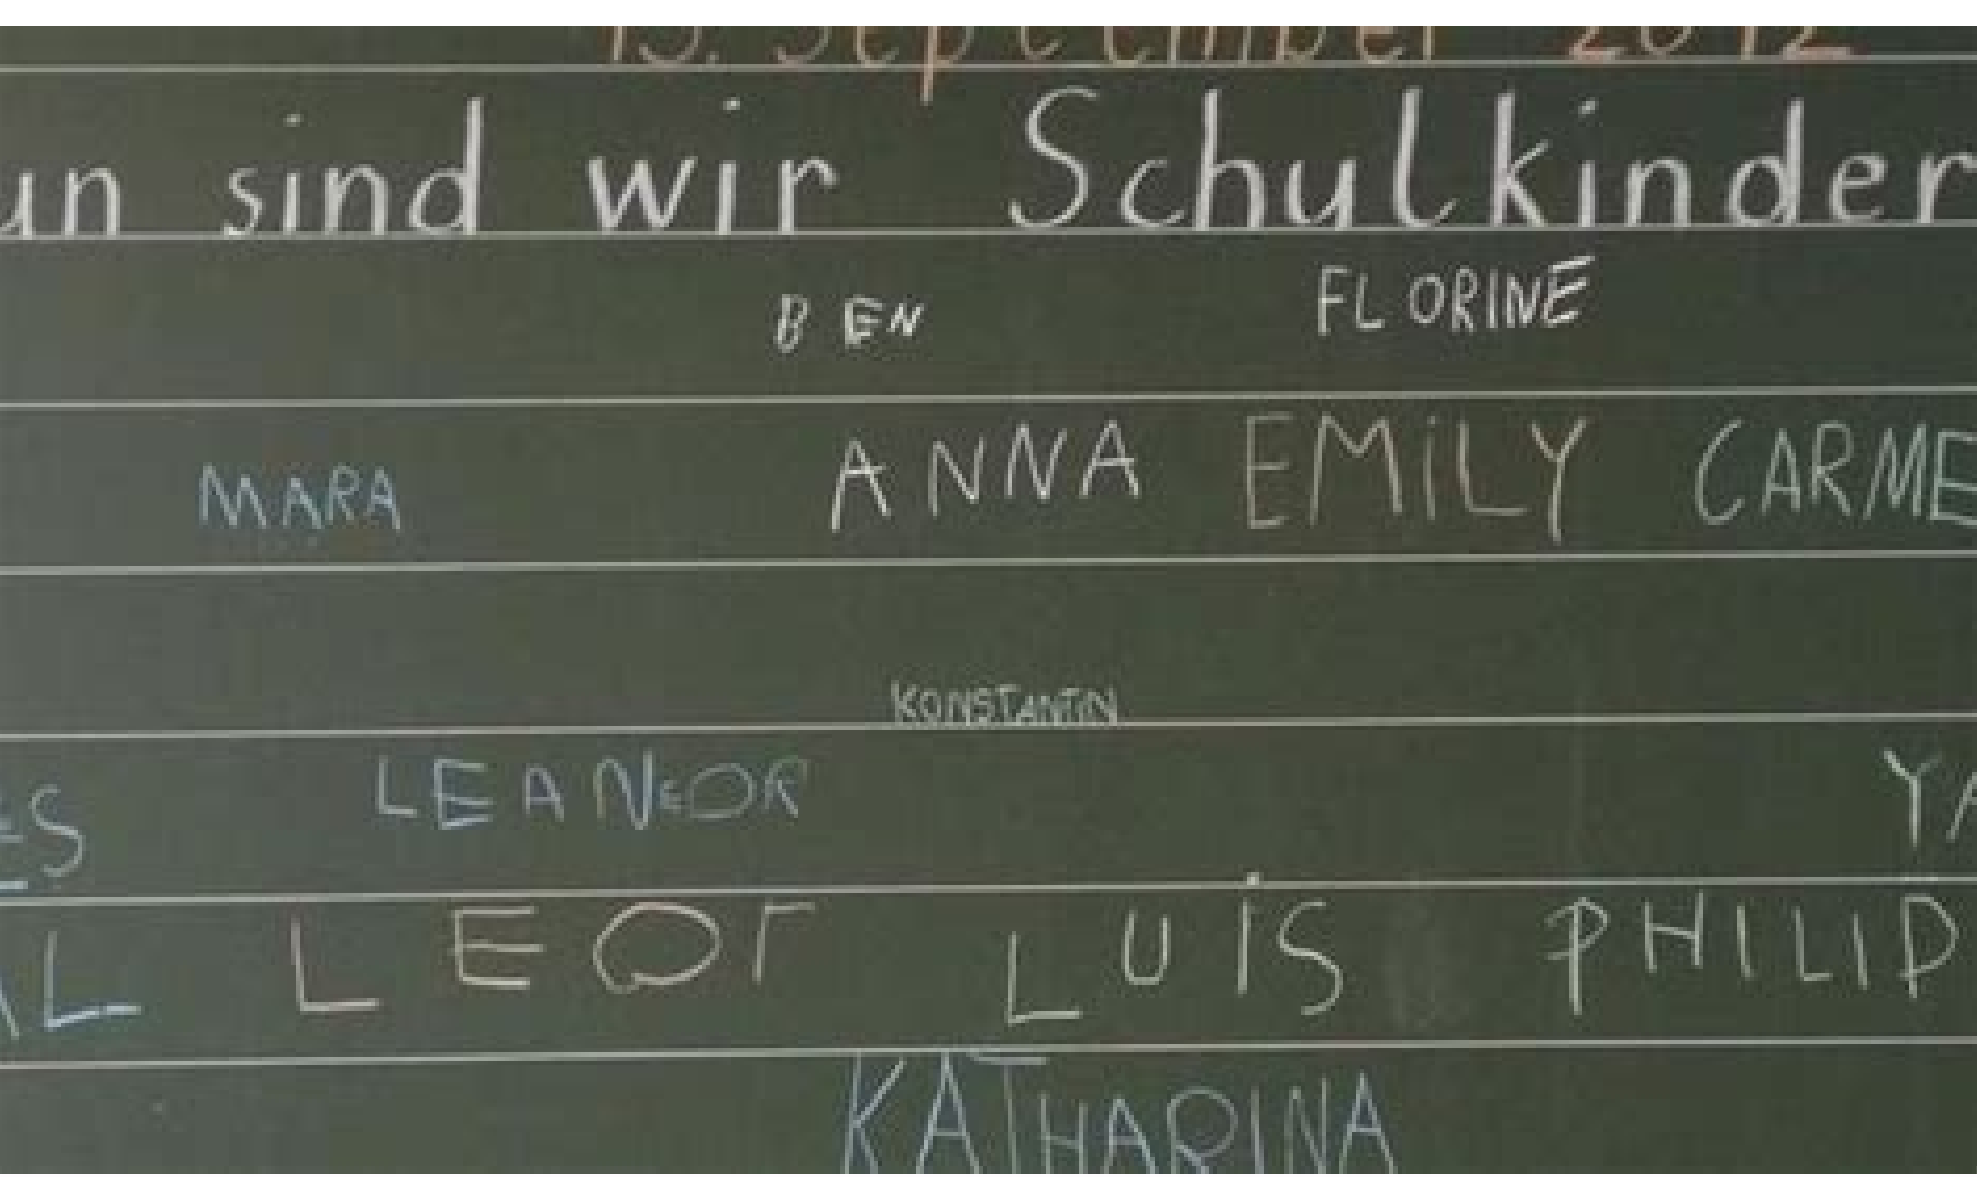 13. September 2012
un sind wir Schulkinder
BEN FLORINE
MARA ANNA EMiLY CARME
KONSTANTIN
ES LEANEOR YA
AL LEOr LUiS PHILIP
KATHARINA